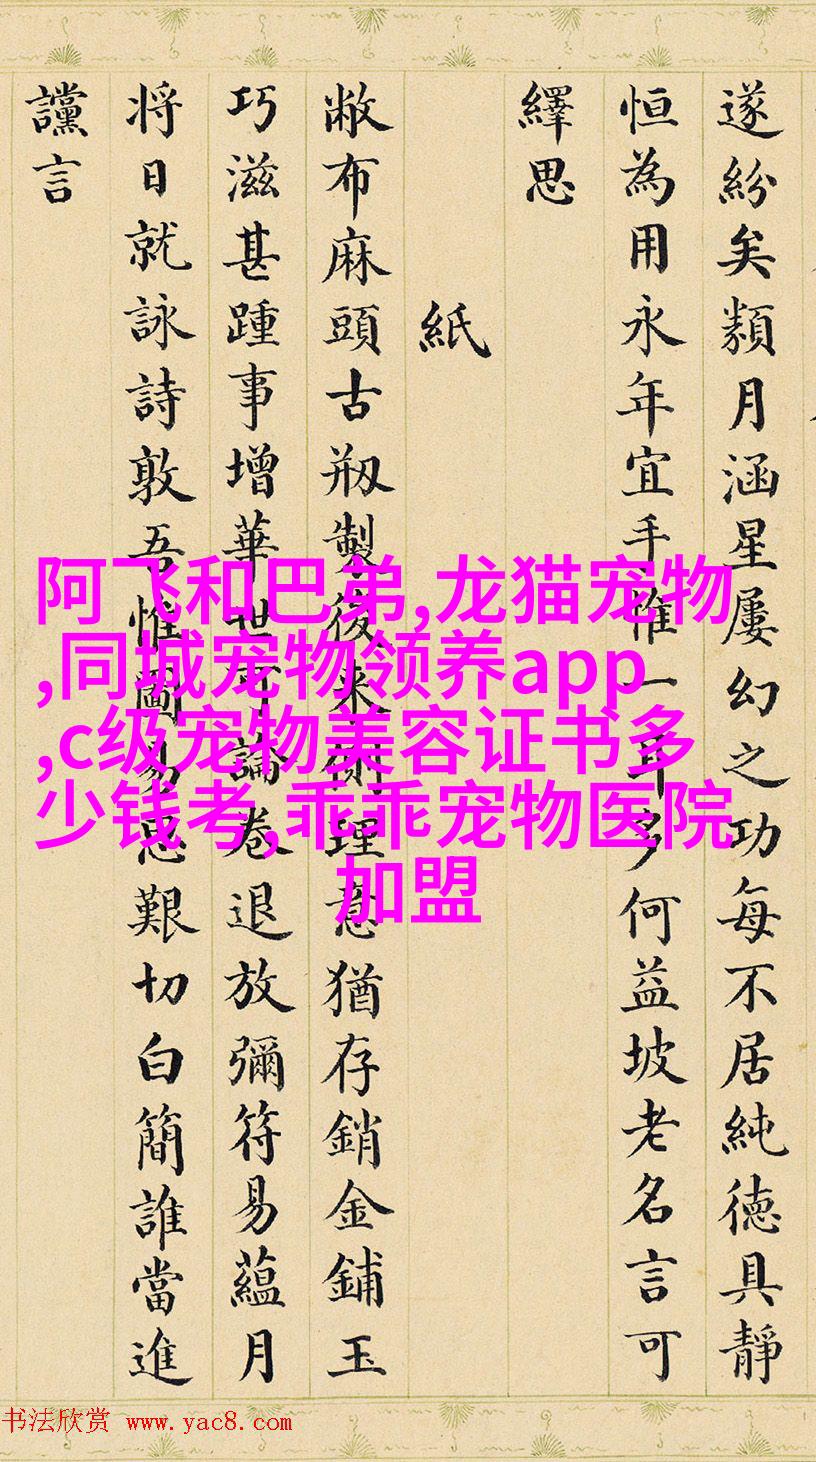 遂紛矣類月涵星屢幻之功每不居純德具靜
恒為用永年宜手惟一耳多何益坡老名言可
繹思
紙
敝布麻頭古刱製後来側理意猶存銷金鋪玉
巧滋甚踵事增華世可論卷退放彌符易蘊月
将日就詠詩敦吾惟圖易思艱切白簡誰當進
讜言
阿飞和巴弟,龙猫宠物
,同城宠物领养app
,c级宠物美容证书多
少钱考,乖乖宠物医院
加盟
书法欣赏 www.yac8.com